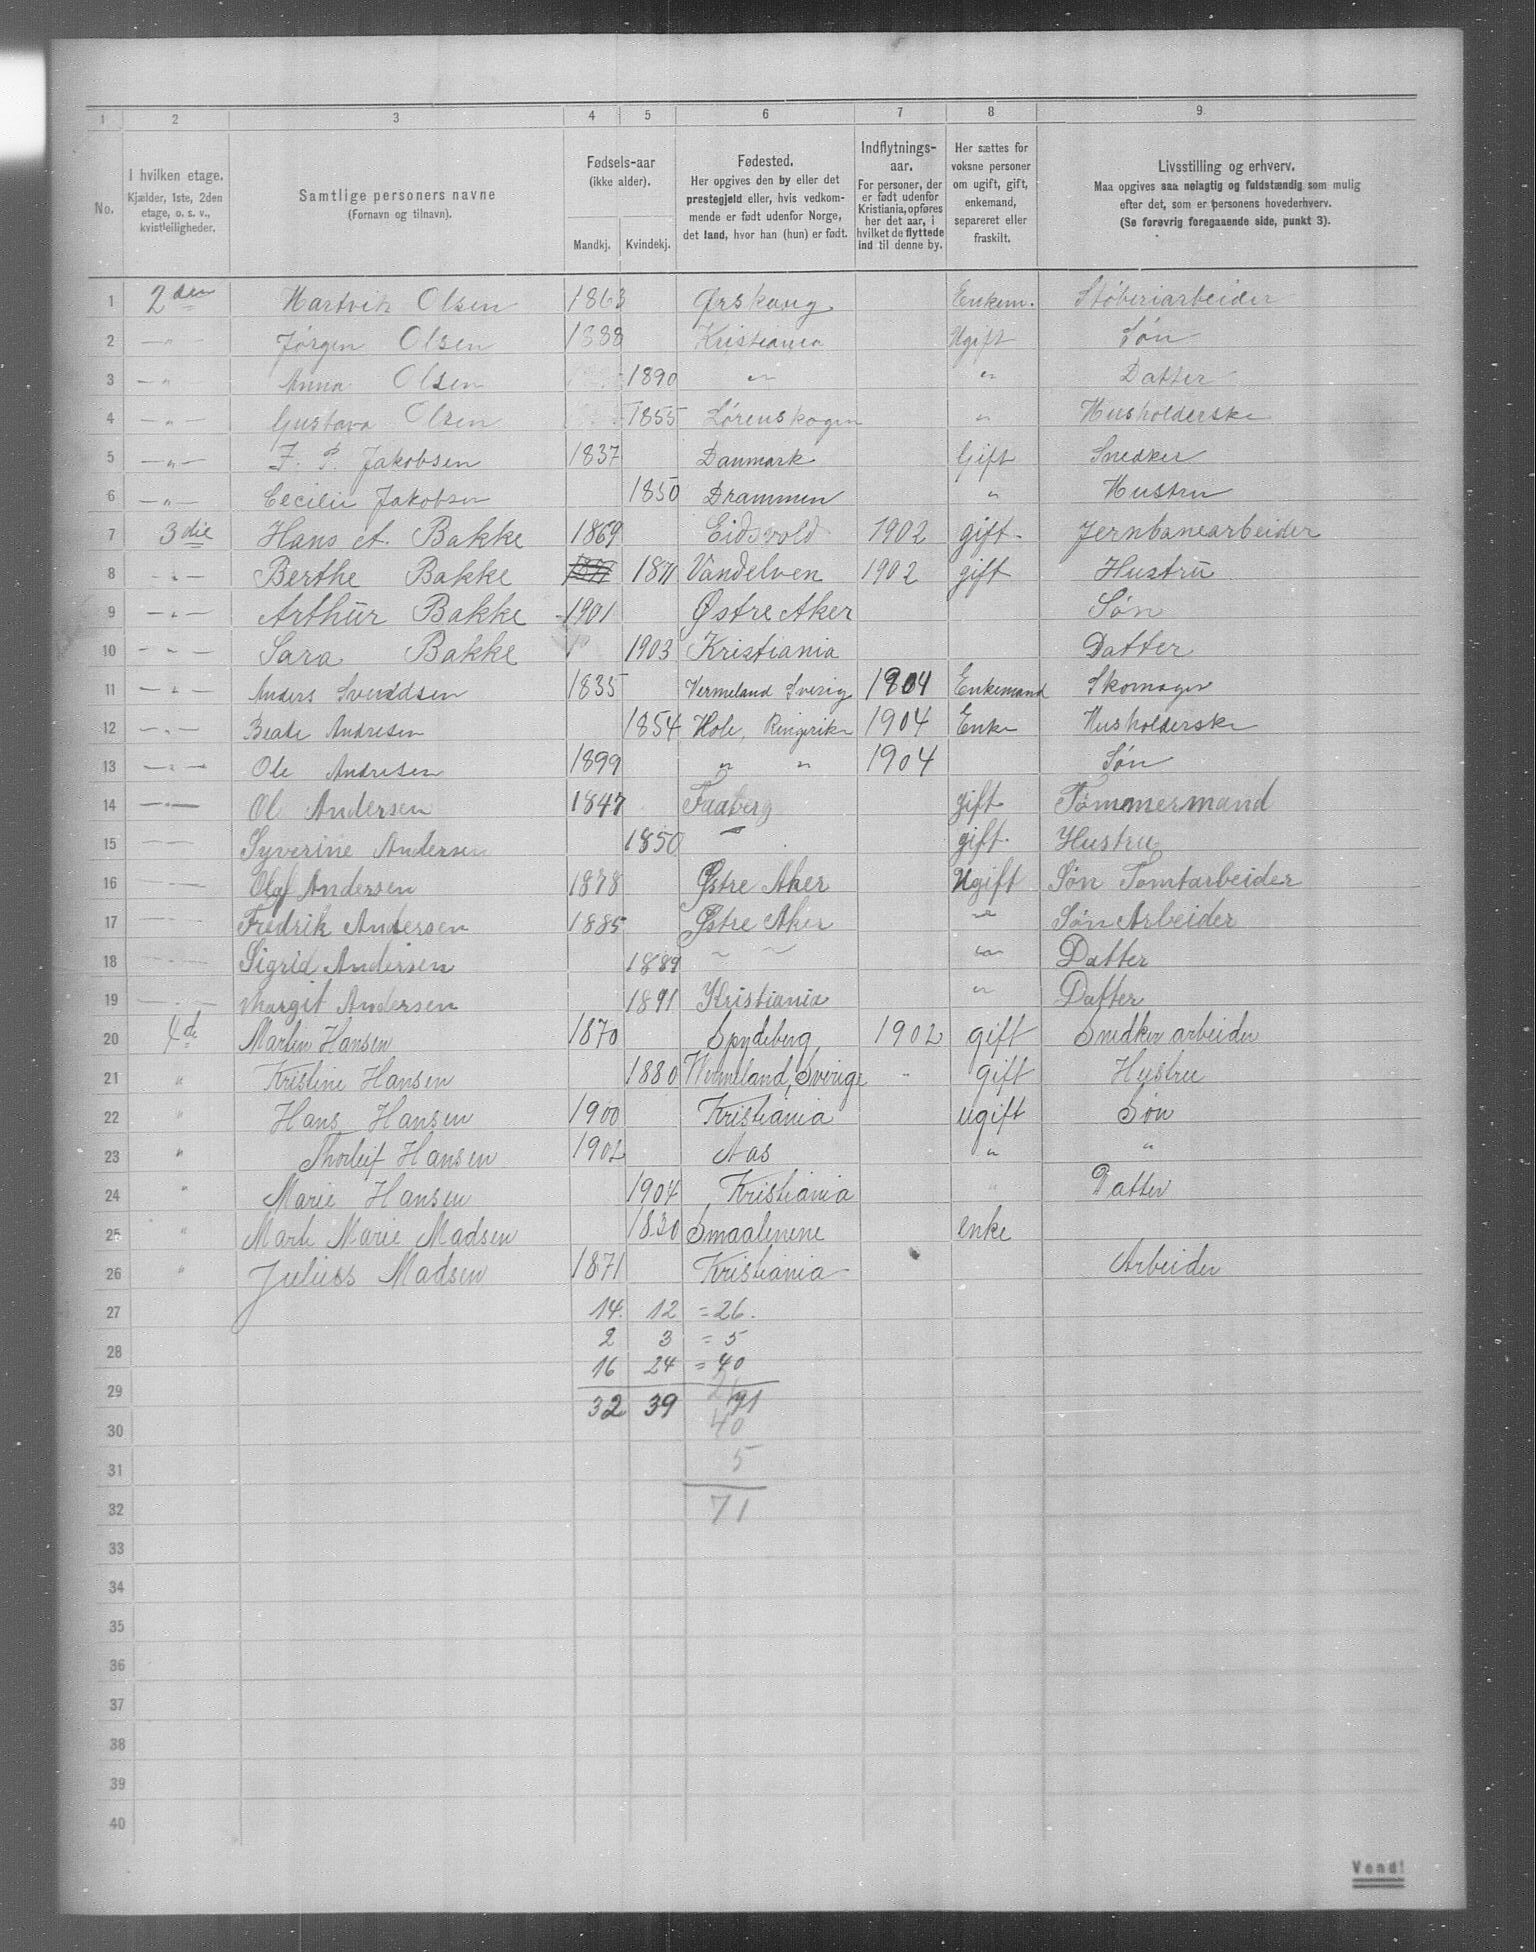 1 2 3 4 5 6 7 8 9
No.
I hvilken etage.
Kjælder, 1ste, 2den
etage, o. s. v.,
kvistleiligheder.
Samtlige personers navne
(Fornavn og tilnavn).
Fødsels-aar
(ikke alder).
Mandkj. Kvindekj.
Fødested.
Her opgives den by eller det
prestegjeld eller, hvis vedkom-
mende er født udenfor Norge,
det land, hvor han (hun) er født.
Indflytnings-
aar.
For personer, der
er født udenfor
Kristiania, opføres
her det aar, i
hvilket de flyttede
ind til denne by.
Her sættes for
voksne personer
om ugift, gift,
enkemand,
separeret eller
fraskilt.
Livsstilling og erhverv.
Maa opgives saa nøiagtig og fuldstændig som mulig
efter det, som er personens hovederhverv.
(Se forøvrig foregaaende side, punkt 3).
1 2den Hartvik Olsen 1863 Ørskoug Enkem. Støberiarbeider
2 -"- Jørgen Olsen 1888 Kristiania Ugift Søn
3 -"- Anna Olsen 1890 " " Datter
4 -"- Gustava Olsen 1855 Lørenskogen " Husholderske
5 -"- J. P. Jakobsen 1837 Danmark Gift Snedker
6 -"- Cecilie Jakobsen 1850 Drammen " Hustru
7 3die Hans A. Bakke 1869 Eidsvold 1902 gift. Jernbanearbeider
8 -"- Berthe Bakke 1871 1871 Vandelven 1902 gift Hustrü
9 -"- Arthür Bakke 1901 Østre Aker Søn
10 -"- Sara Bakke 1903 Kristiania Datter
11 -"- Anders Svendsen 1835 Vermeland Sverig 1904 Enkemand Skomager
12 -"- Beate Andresen 1854 Hole, Ringerike 1904 Enke Husholderske
13 -"- Ole Andresen 1899 " " 1904 Søn
14 -"- Ol Andersen 1847 Faaberg gift Tømmermand
15 -- Syverine Andersen 1850 " gift. Hustru
16 -- Olaf Andersen 1878 Østre Aker Ugift Søn Tomtarbeider
17 -- Fredrik Andersen 1885 Østre Aker " Søn Arbeider
18 -- Sigrid Andersen 1889 " " " Datter
19 -- Margit Andersen 1891 Kristiania " Datter
20 4de Martin Hansen 1870 Spydeberg 1902 gift Snedker arbeider
21 " Kristine Hansen 1880 Vermeland, Sverige " gift Hustru
22 " Hans Hansen 1900 Kristiania ugift Søn
23 " Thorleif Hansen 1902 Aas " "
24 " Marie Hansen 1904 Kristiania " Datter
25 " Marie Madsen 1830 Smaalenene enke
26 " Julius Madsen 1871 Kristiania Arbeider
27 14. 12 = 26.
28 2 3 = 5
16 24 = 40
29 32 39 71
30 40
31 5
32 71
33
34
35
36
37
38
39
40
Vend!